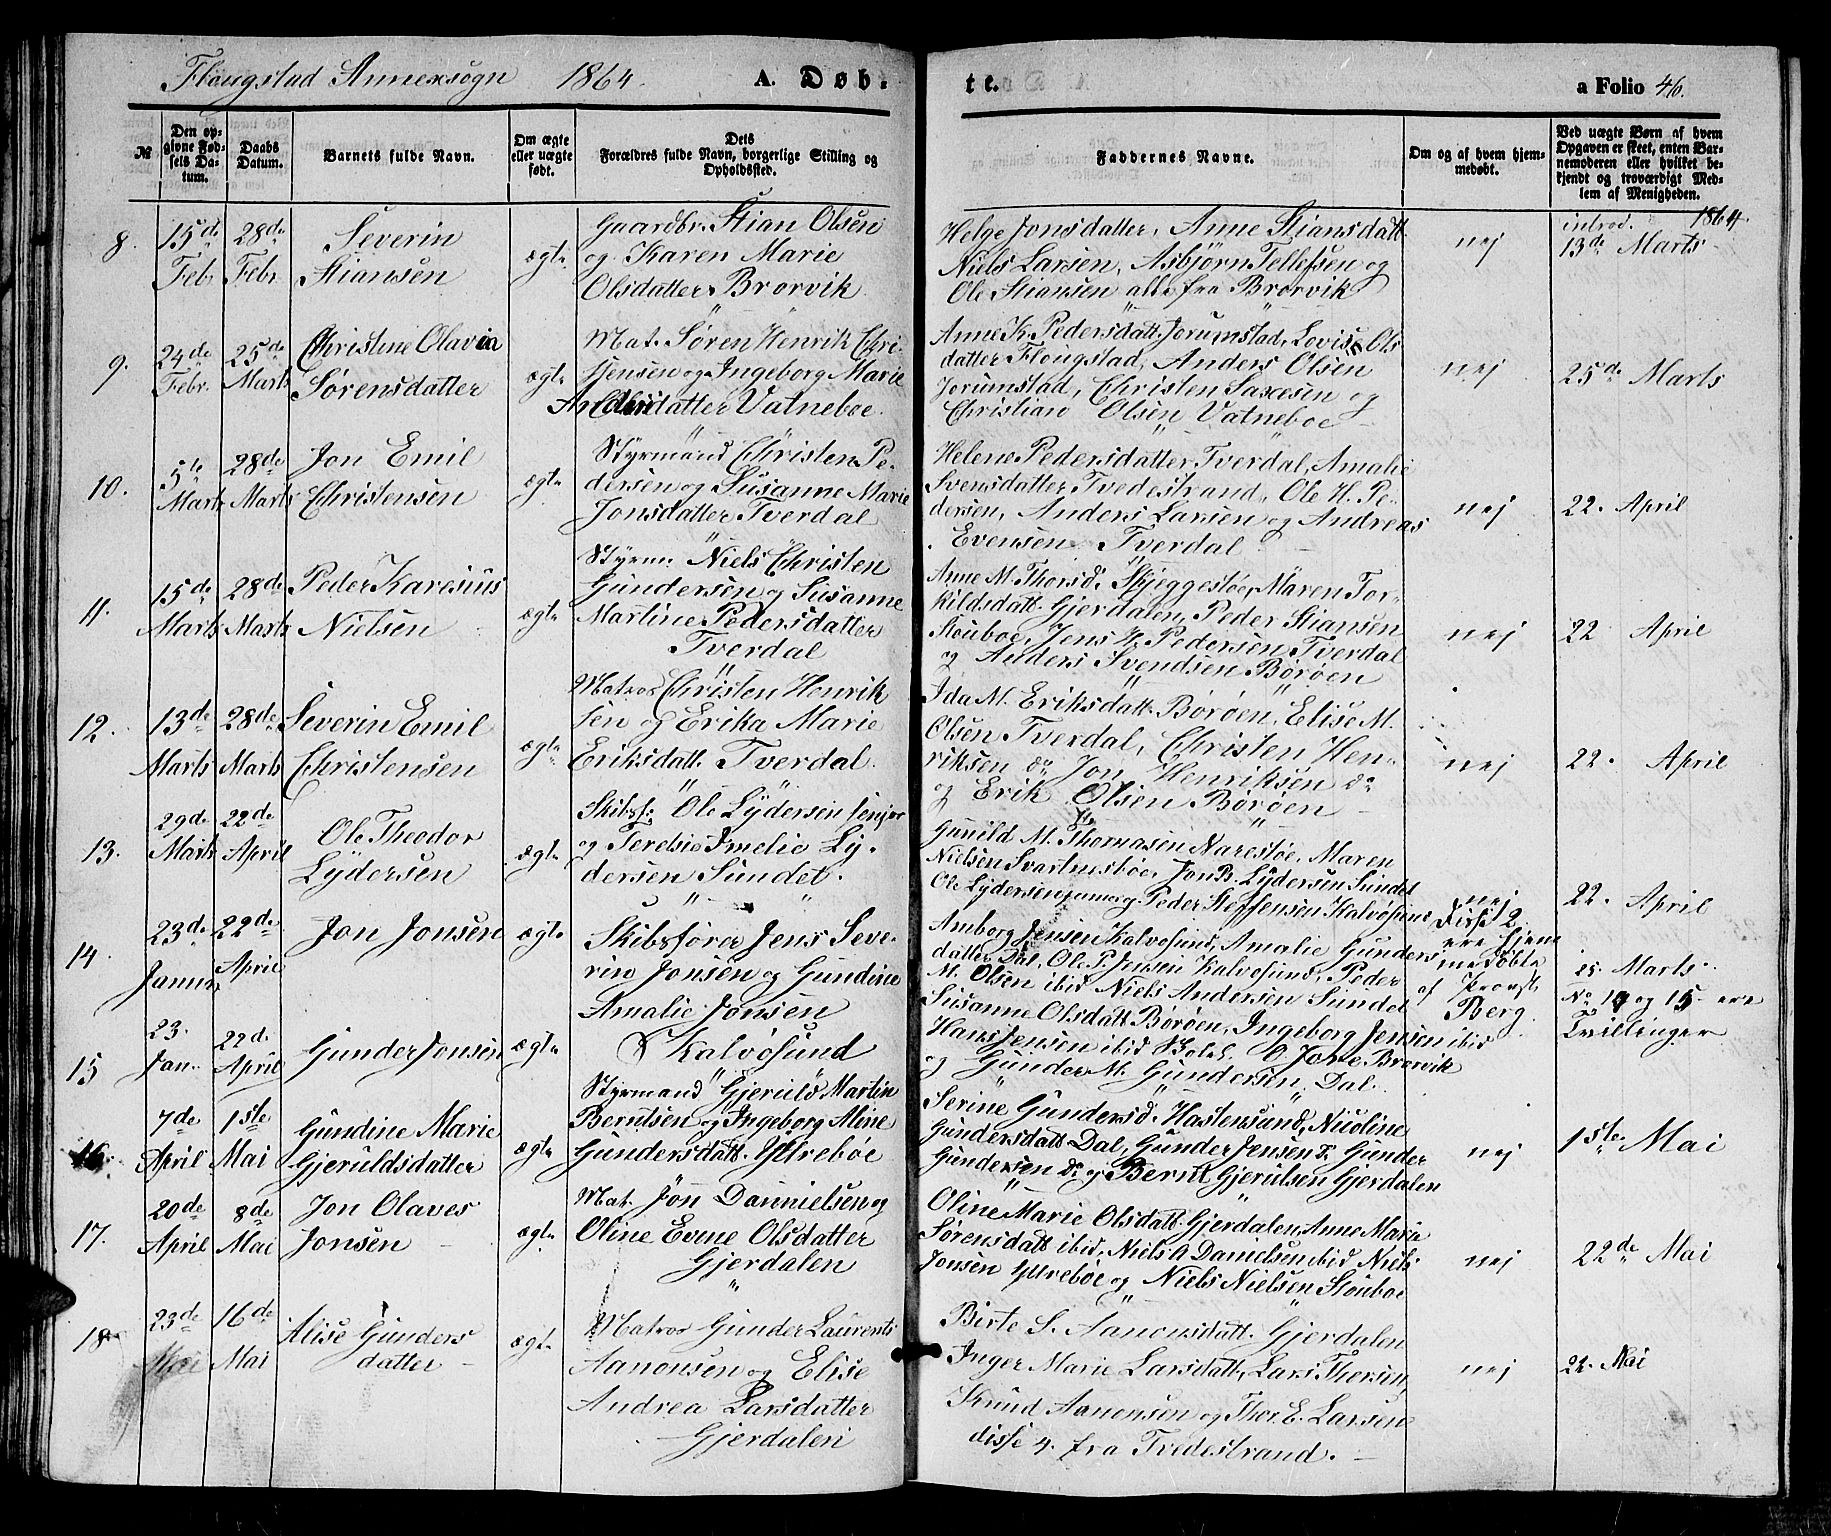 Flougstad Annexsogn 1864. A. Døb-
te. a Folio 46.
№
Den op-
givne Fød-
sels Da-
tum.
Daabs
Datum.
Barnets fulde Navn.
Om ægte
eller uægte
født.
Dets
Forældres fulde Navn, borgerlige Stilling og
Opholdssted.
Faddernes Navne.
Om og af hvem hjem-
medøbt.
Ved uægte Børn af hvem
Opgaven er skeet, enten Bar-
nemoderen eller hvilket be-
kjendt og troværdigt Med-
lem af Menigheden.
8. 15de Febr 28de Febr
Severin
Stiansen
ægte
Gaardbr. Stian Olsen
og Karen Marie
Olsdatter Brorvik
Helge Jonsdatter, Anne Stiansdatt
Niels Larsen, Asbjørn Tellefsen og
Ole Stiansen alle fra Brorvik
nej
introd. 1864.
13de Marts
9. 24de Febr. 25de Marts
Christine Olavia
Sørensdatter
ægte
Mat. Søren Henrik Chri-
stensen og Ingeborg Marie
Andersdatter Vatneboe.
Anne K. Pedersdatt. Jorumstad, Lovise Ols
datter Flougstad, Anders Olsen
Jorumstad, Christen Saxesen og
Christian Olsen Vatneboe
nej
25de Marts
10. 5te Marts 28de Marts
Jon Emil
Christensen
ægte
Styrmand Christen Pe-
dersen og Susanne Marie
Jonsdatter Tverdal
Helene Pedersdatter Tverdal, Amalie
Svensdatter Tvedestrand, Ole H. Pe-
dersen, Anders Larsen og Andreas
Evensen Tverdal
nej
22. April
11. 15de Marts 28de Marts
Peder Karesius
Nielsen
ægte
Styrm. Niels Christen
Gundersen og Susanne
Martine Pedersdatter
Tverdal
Anne M. Thorsd. Skjeggestøe, Maren Tor-
kildsdatt. Gjerdalen, Peder Stiansen
Stouboe, Jens H. Pedersen Tverdal
og Anders Svendsen Børøen
nej
22 April
12. 13de Marts 28de Marts
Severin Emil
Christensen
ægte
Matros Christen Henrik
sen og Erika Marie
Eriksdatt. Tverdal.
Ida M. Eriksdatt. Børøen, Elise M.
Olsen Tverdal, Christen Hen-
riksen do Jon Henriksen do
og Erik Olsen Børøen
nej
22. April
13. 29de Marts 22de April
Ole Theodor
Lydersen
ægte
Skibsf. Ole Lydersen senjor
og Teresie Amelie Ly-
dersen Sundet.
Gunild M. Thomasen Narestøe, Maren
Nielsen Svartnesbøe, Jon B. Lydersen Sundet
Ole Lydersen jun. og Peder Steffensen Kalvøsund
nej
22. April
14. 23de Januar 22de April
Jon Jonsen
ægte
Skibsfører Jens Seve-
rin Jonsen og Gundine
Amalie Jonsen
Kalvøsund
Amborg Jensen Kalvøsund, Amalie Gunders
datter Dal, Ole P. Jensen Kalvøsund, Peder
M. Olsen ibid Niels Andersen Sundet
Disse 2
ere hjem
medøbte
af Provst
Berg.
25. Marts
No 14 og 15 ere
Tvillinger
15 23. Jan. 22de April
Gunder Jonsen
ægte
Susanne Olsdatt. Børøen, Ingeborg Jensen ibid
Hans Jensen ibid O. Jone Brorvik
og Gunder M. Gundersen Dal.
16. 7de April 1ste Mai
Gundine Marie
Gjeruldsdatter
ægte
Styrmand Gjeruld Martin
Berntsen og Ingeborg Mine
Gundersdatt. Yttrebøe
Serine Gundersd. Hastensund, Nicoline
Gundersdatt Dal, Gunder Jensen do Gunder
Gundersen do og Bernt Gjerulsen Gjerdalen
nej
15te Mai
17. 20de April 8de Mai
Jon Olaves
Jonsen
ægte
Mat. Jon Dannielsen og
Oline Evine Olsdatter
Gjerdalen
Oline Marie Olsdatt. Gjerdalen, Anne Marie
Sørensdatt ibid, Niels A Danielsen ibid Niels
Jonsen Yttrebøe og Niels Nielsen Stouboe
nej
22de Mai
18 23de Mai 16de Mai
Alise Gunders
datter
ægte
Matros Gunder Laurents
Aanonsen og Elise
Andrea Larsdatter
Gjerdalen
Birte S. Aanonsdatt. Gjerdalen
Inger Marie Larsdatt, Lars Thorsen,
Knud Aanonsen og Thor E. Larsen
disse 4. fra Tvedestrand.
nej
22. Mai